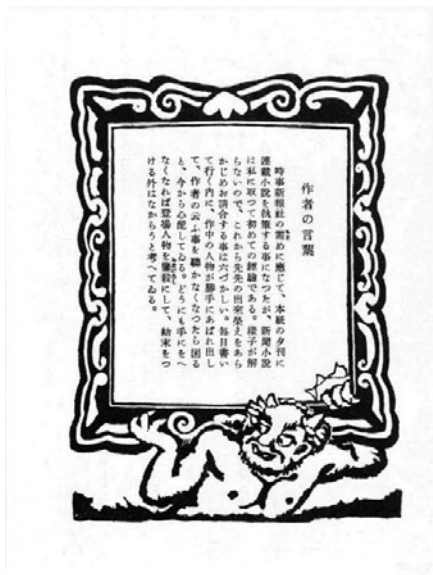 作者の言葉
時事新報社の需めに応じて、本紙の夕刊に
連載小説を執筆する事になつたが、新聞小説
は私に取つて初めての経験である。様子が解
らないので、これから先先の出来栄えをあら
かじめお請合する事は六づかしい。毎日書い
て行く内に、作中の人物が勝手にあばれ出し
て、作者の云ふ事を聴かなくなつたら困る
と、今から心配してゐる。どうにも手にをへ
なくなれば登場人物を鏖殺にして、結末をつ
ける外はなからうと考へてゐる。